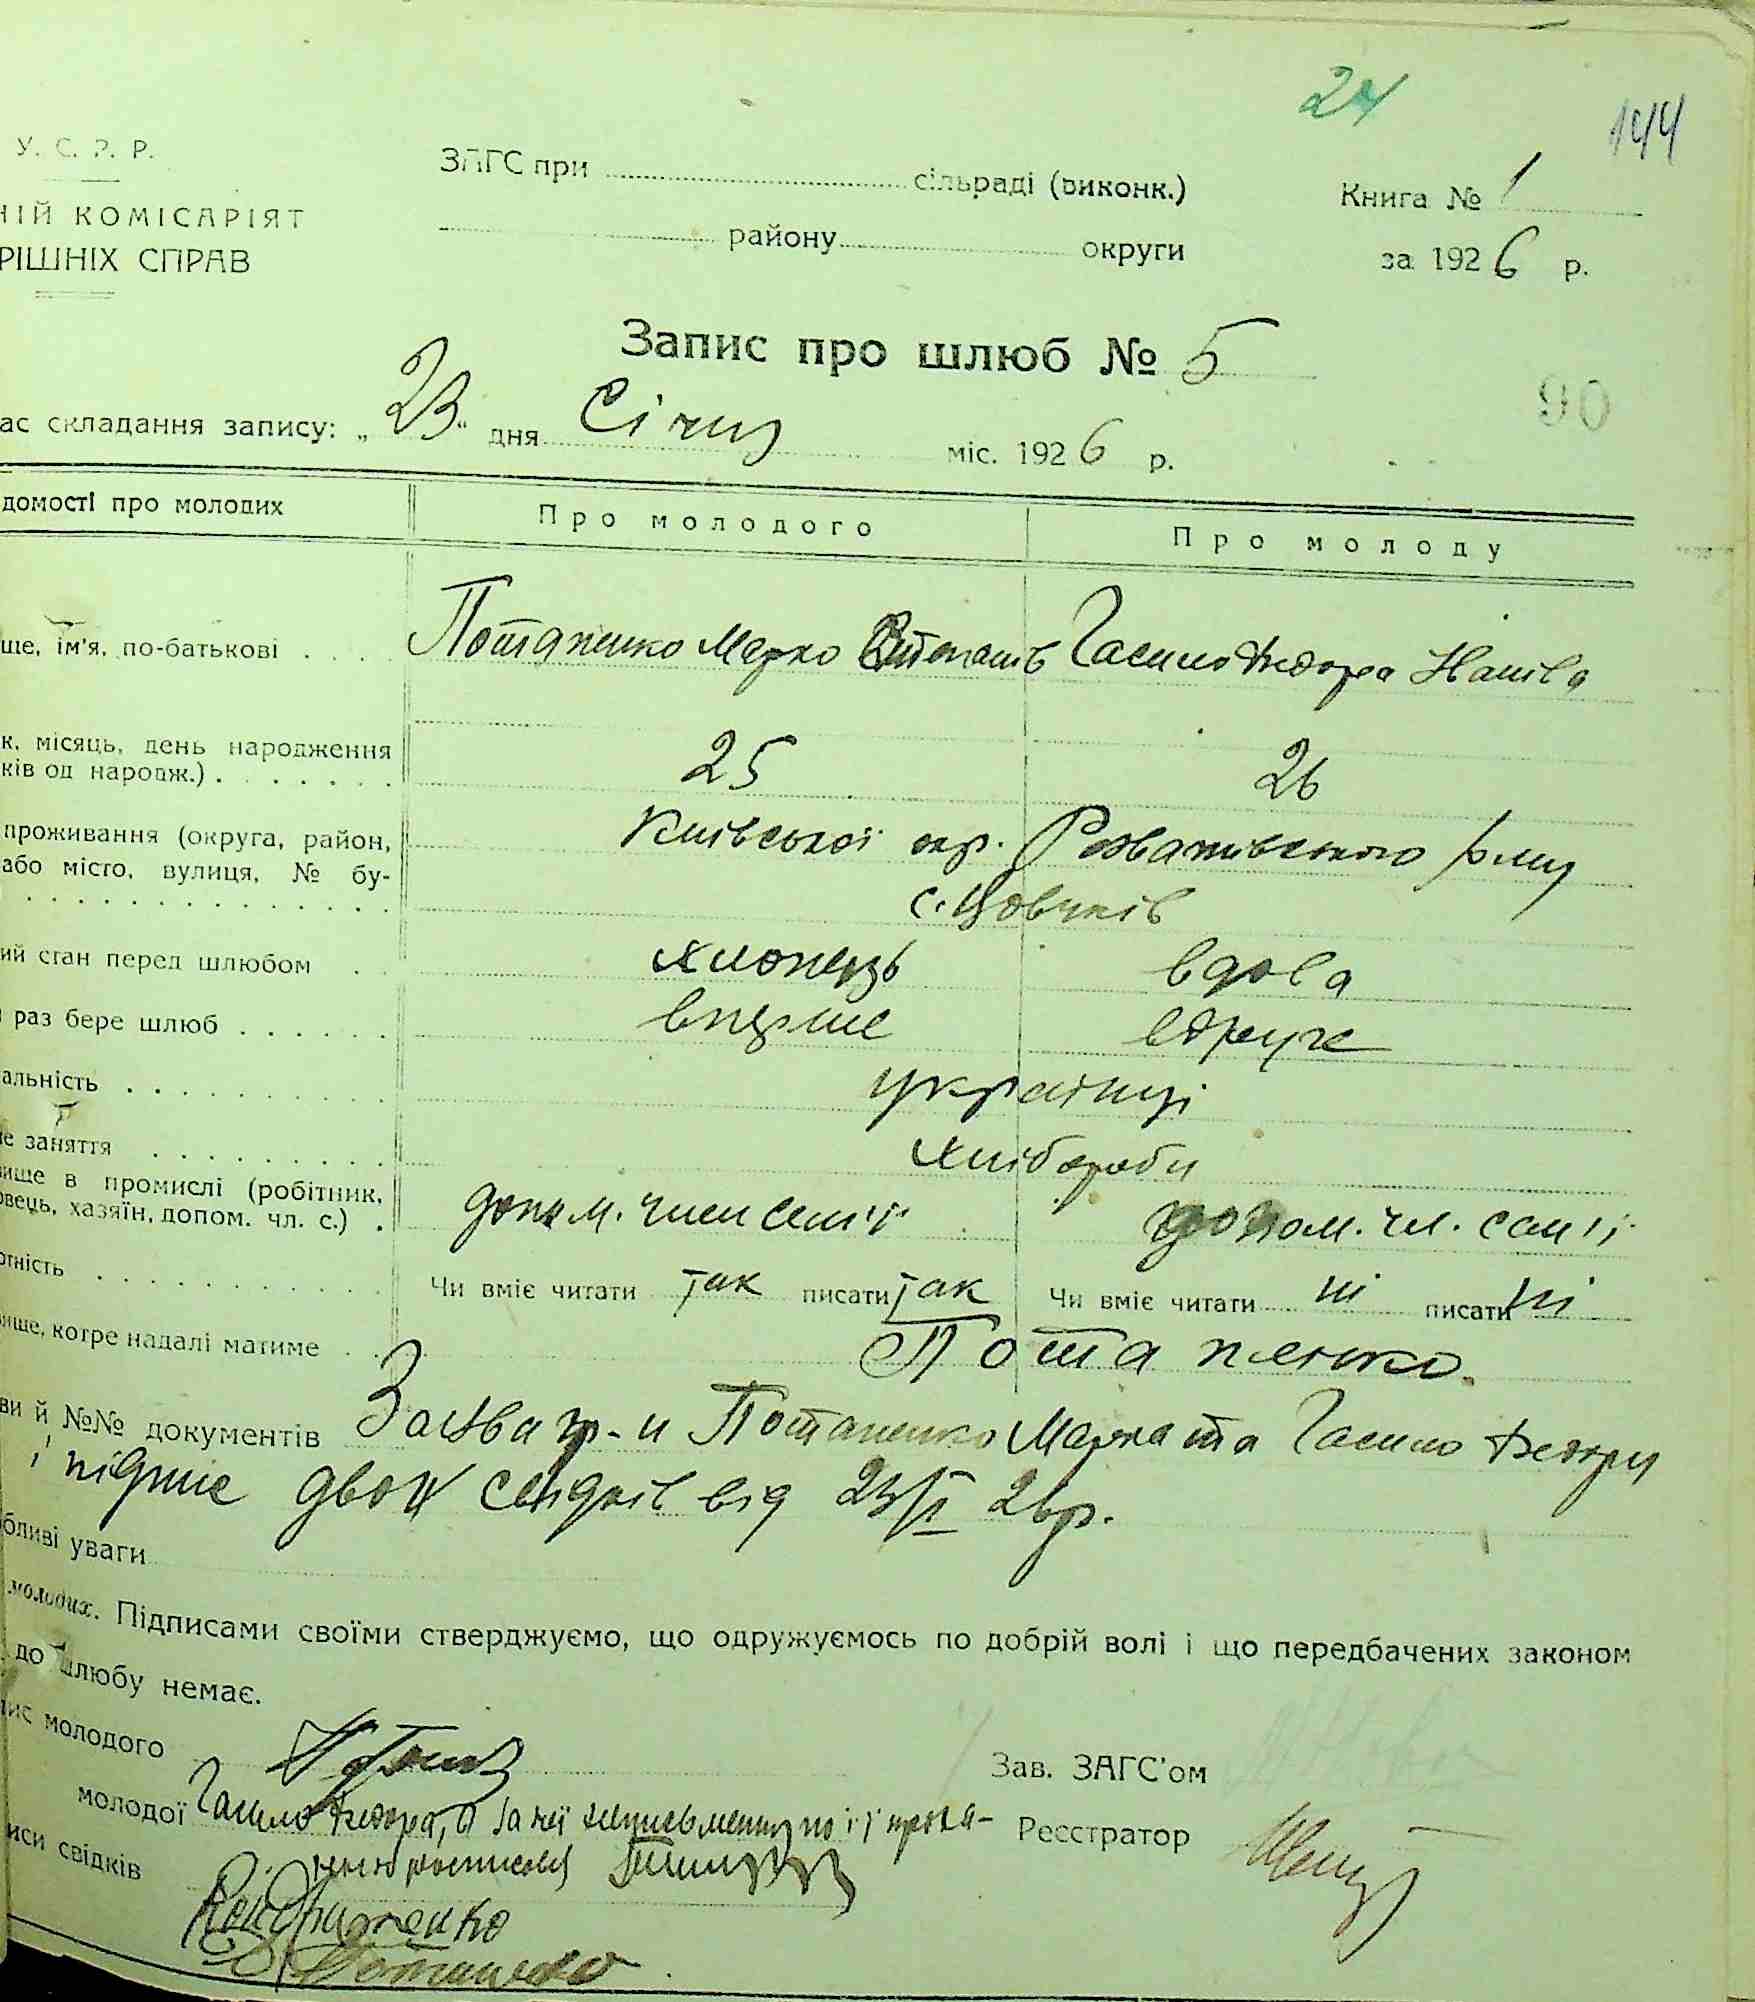 24
144
У. С. Р. Р.
НІЙ КОМІСАРІЯТ
РІШНІХ СПРАВ
ЗАГС при сільраді (виконк.)
району округи
Книга № 1
за 1926 р.
Запис про шлюб № 5
90
ас складання запису: „23" дня Січня міс. 1926 р.
домості про молодих
Про молодого
Про молоду
ще, ім'я, по-батькові
Потапенко Марко Степанів
Гасило Федора Нанівa
к, місяць, день народження
ків од народж.)
25
26
проживання (округа, район,
або місто, вулиця, № бу-
Київської окр. Розважівського р-ну
с.
ий стан перед шлюбом
хлопець
вдова
раз бере шлюб
вперше
вдруге
альність
українці
не заняття
хлібороби
вище в промислі (робітник,
овець, хазяїн, допом. чл. с.)
допом. член сем'ї
допом. чл. сем'ї
отність
Чи вміє читати так писати так
Чи вміє читати ні писати ні
вище, котре надалі матиме
Потапенко.
ви й №№ документів Заява гр-н Потапенко Марка та Гасило Федори
і підпис двох свідків від 23/I 26р.
бливі уваги
молодих. Підписами своїми стверджуємо, що одружуємось по добрій волі і що передбачених законом
до шлюбу немає.
ис молодого
Зав. ЗАГС'ом
молодої Гасило Федора, а за неї неписьменну по її проха-
нню росписався
Реєстратор
иси свідків
Кондратенко
Потапенко